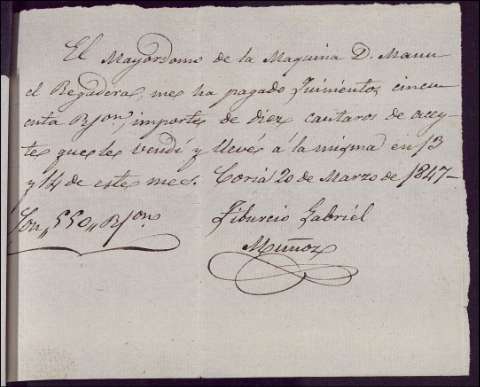 El Mayordomo de la Maquina D. Manu-
el Regadera, me ha pagado Quinientos, cincu
enta Rson, importe de diez cantaros de acey-
te que le vendí y llevé a la misma en 13
y 14 de este mes. Coria 20 de Marzo de 1847-
Son,, 550,, Rson.
Tiburcio Gabriel
Muñoz